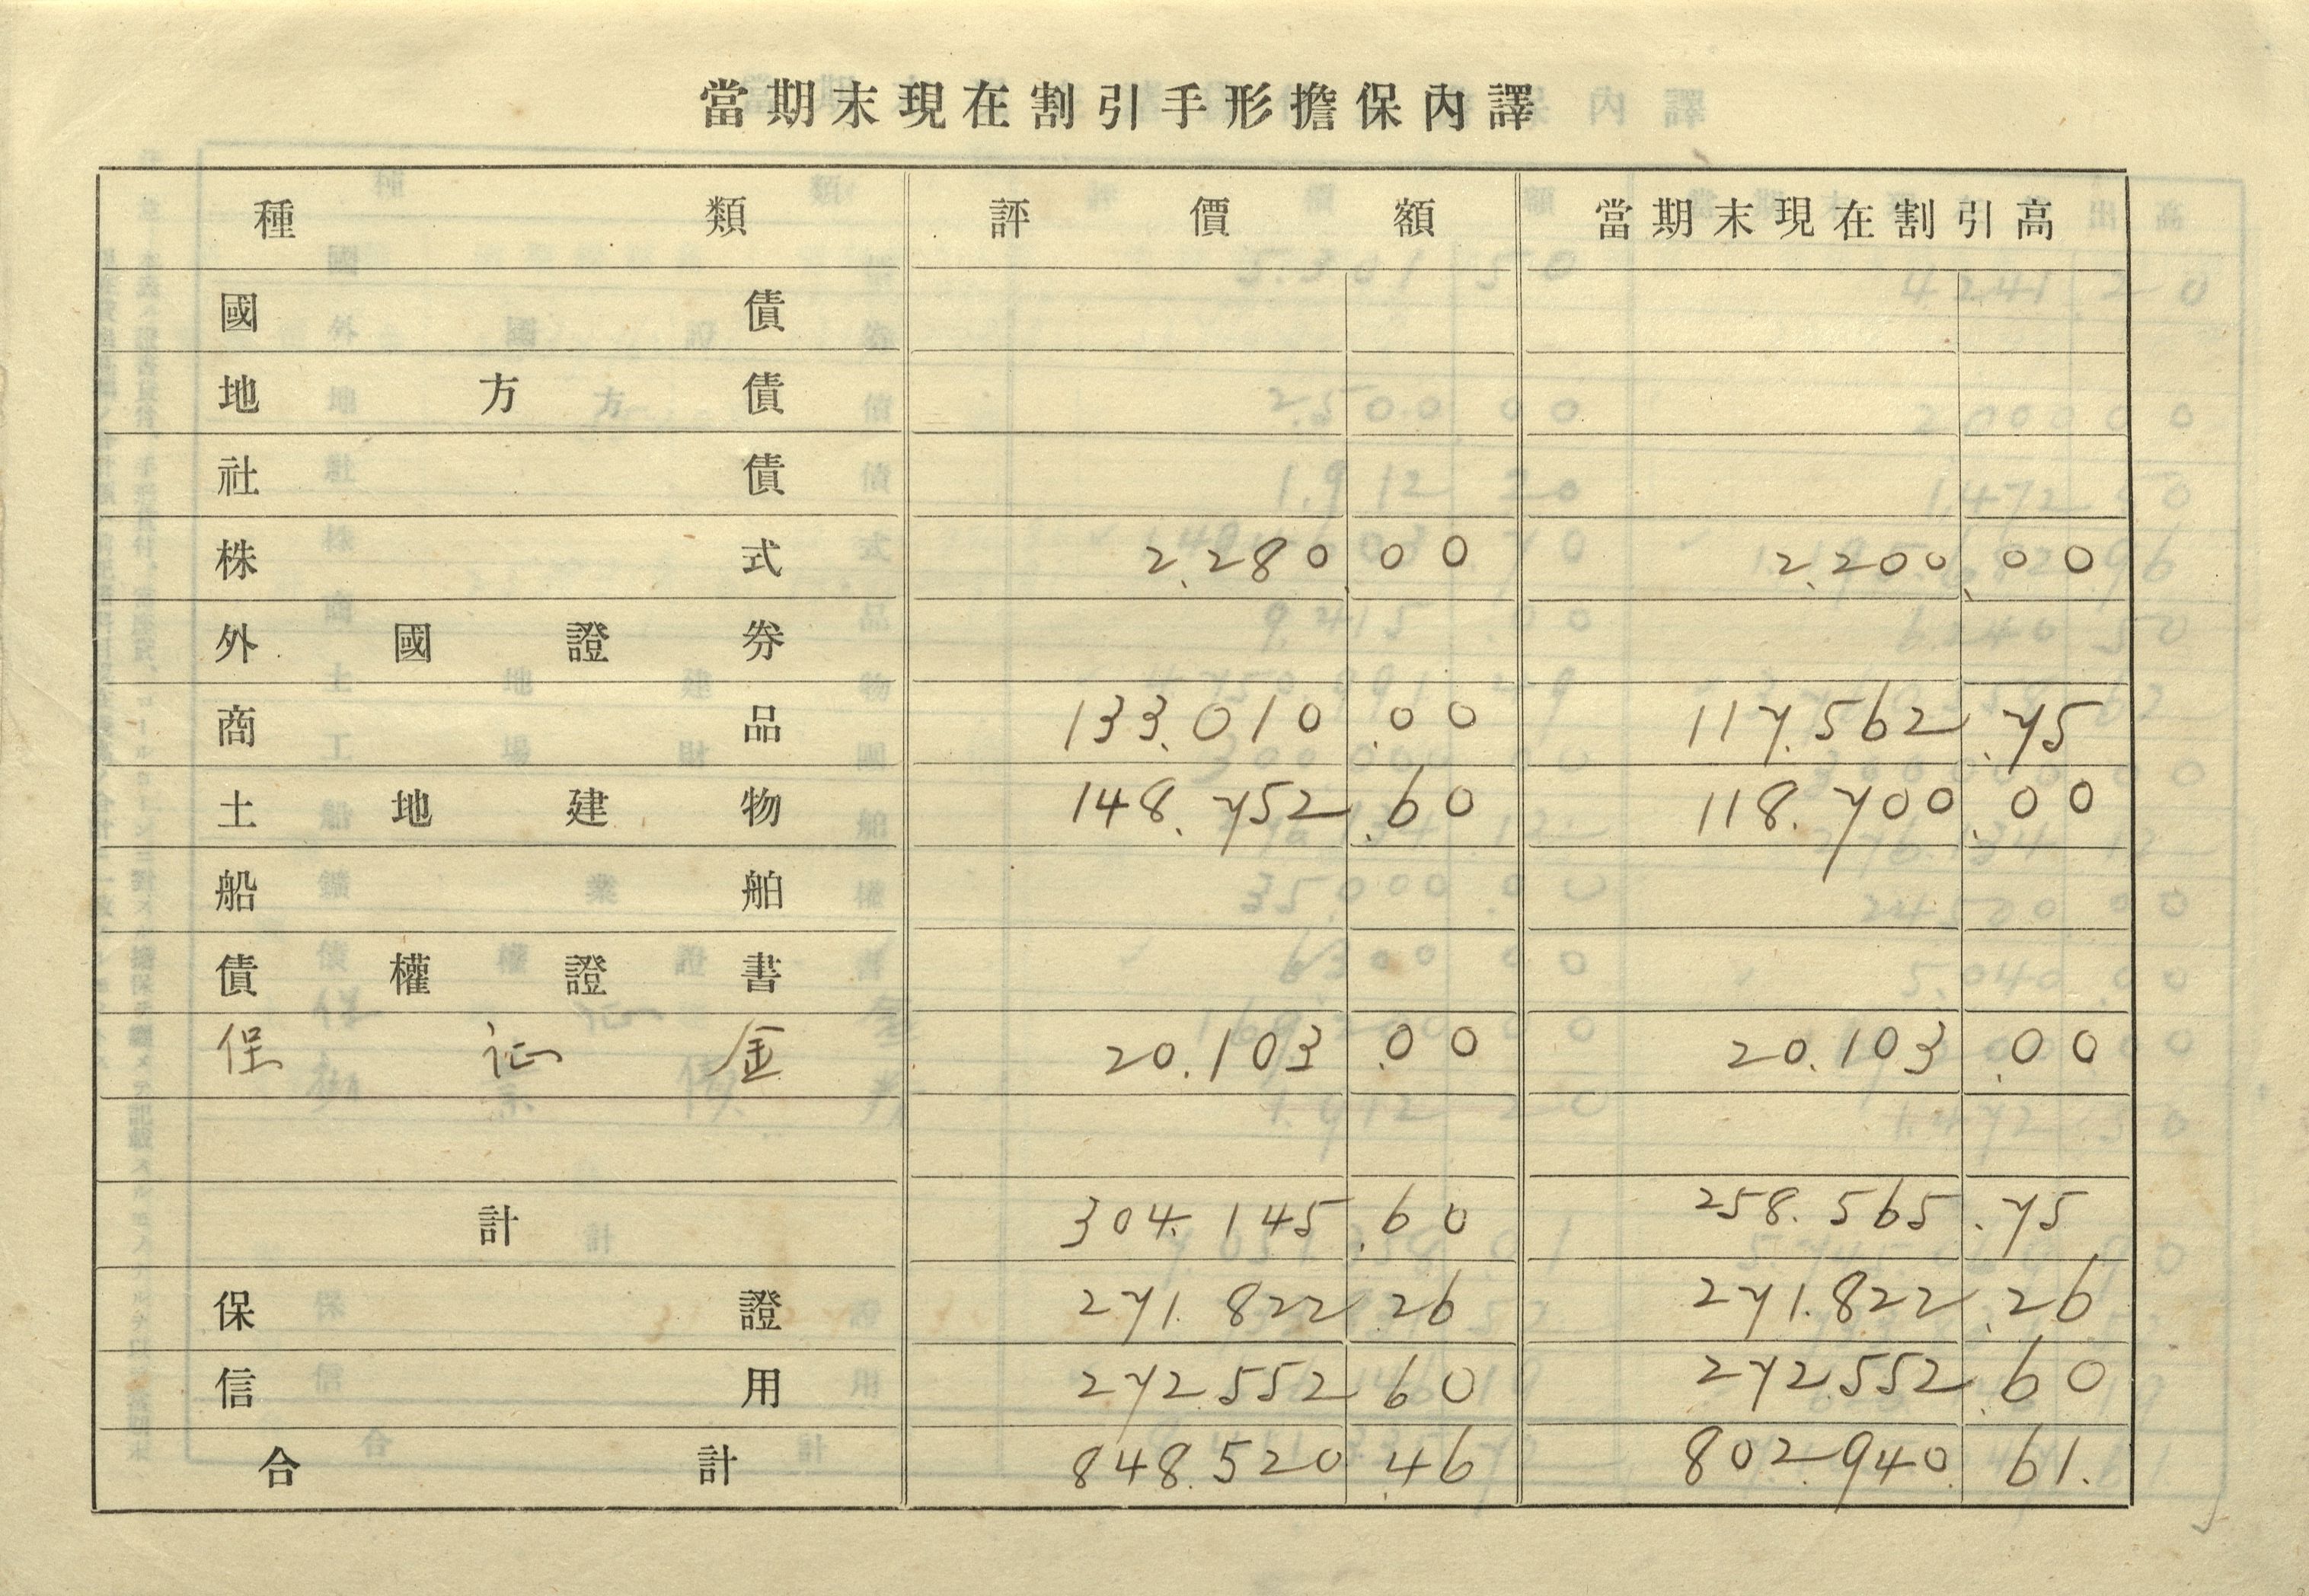 當期末現在割引手形擔保內譯
種類 評價額 當期末現在割引高
國債
地方債
社債
株式 2.280.00 2.200.00
外國證券
商品 133.010.00 117.562.75
土地建物 148.752.60 118.700.00
船舶
債權證書
保証金 20.103.00 20.103.00
計 304.145.60 258.565.75
保證 271.822 26 271.822.26
信用 272552 60 272552.60
合計 848.520.46 802.940.61.